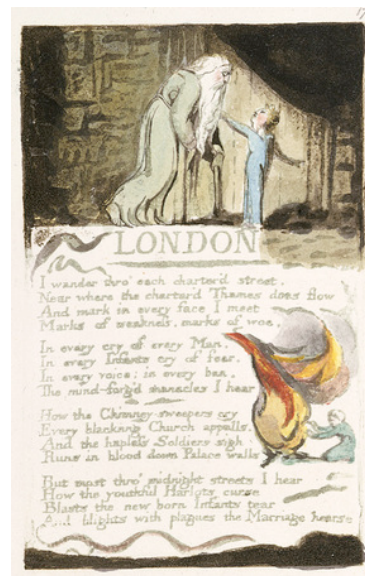 LONDON
I wander thro' each charter'd street,
Near where the charter'd Thames does flow
And mark in every face I meet
Marks of weakness, marks of woe.
In every cry of every Man,
In every Infants cry of fear,
In every voice; in every ban,
The mind-forg'd manacles I hear
How the Chimney-sweepers cry
Every blackning Church appalls,
And the hapless Soldiers sigh
Runs in blood down Palace walls
But most thro' midnight streets I hear
How the youthful Harlots curse
Blasts the new born Infants tear
And blights with plagues the Marriage hearse